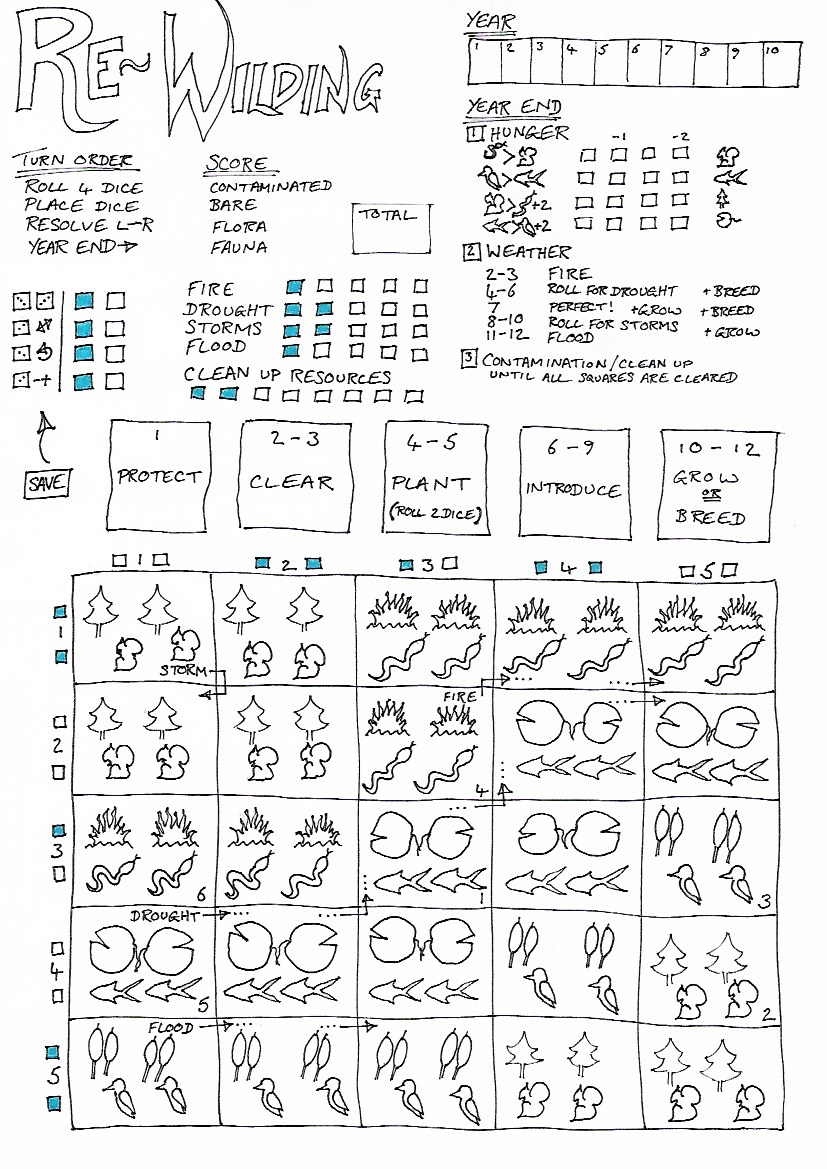 RE~WILDING
YEAR
1 2 3 4 5 6 7 8 9 10
YEAR END
1 HUNGER -1 -2
>
>
> +2
> +2
2 WEATHER
2-3 FIRE
4-6 ROLL FOR DROUGHT +BREED
7 PERFECT! +GROW +BREED
8-10 ROLL FOR STORMS +GROW
11-12 FLOOD
3 CONTAMINATION/CLEAN UP
UNTIL ALL SQUARES ARE CLEARED
TURN ORDER
ROLL 4 DICE
PLACE DICE
RESOLVE L-R
YEAR END→
SCORE
CONTAMINATED
BARE
FLORA
FAUNA
TOTAL
FIRE
DROUGHT
STORMS
FLOOD
CLEAN UP RESOURCES
-+
SAVE
1
PROTECT
2-3
CLEAR
4-5
PLANT
(ROLL 2 DICE)
6-9
INTRODUCE
10-12
GROW
OR
BREED
1 2 3 4 5
1
STORM
2
FIRE
4
3
6 1 3
DROUGHT
4
5 2
FLOOD
5